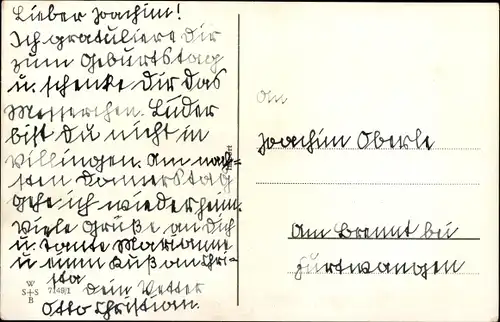 Lieber Joachim!
Ich gratuliere Dir
zum Geburtstag
u. schenke Dir das
Messerchen. Luder
bist Du nicht in
Villingen. Am näch-
sten Donnerstag
gehe ich wiederheim.
Viele Grüße an Dich
u. Tante Marianne
u einen Kuß an Chri-
sta
Dein Vetter
Otto Christian.
W
S+S
B
7149/1
An
Joachim Oberle
Am Brennt bei
Furtwangen